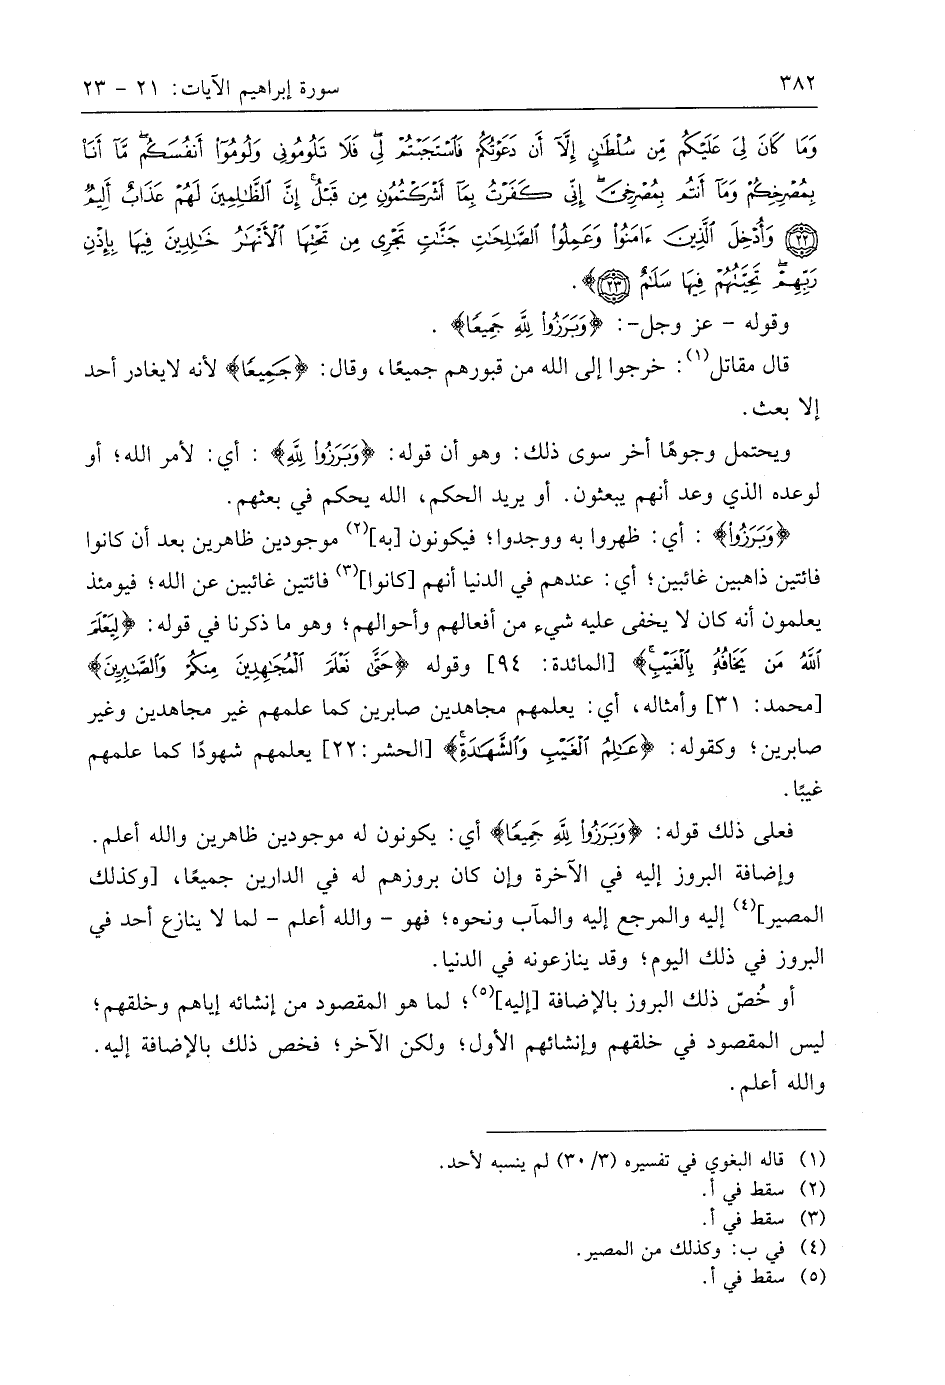 ٣٨٢
سورة إبراهيم الآيات: ٢١ - ٢٣
وَمَا كَانَ لِيَ عَلَيْكُم مِّن سُلْطَٰنٍ إِلَّآ أَن دَعَوْتُكُمْ فَٱسْتَجَبْتُمْ لِيۖ فَلَا تَلُومُونِي وَلُومُوٓا۟ أَنفُسَكُمۖ مَّآ أَنَا۠
بِمُصْرِخِكُمْ وَمَآ أَنتُم بِمُصْرِخِيَّۖ إِنِّي كَفَرْتُ بِمَآ أَشْرَكْتُمُونِ مِن قَبْلُۗ إِنَّ ٱلظَّٰلِمِينَ لَهُمْ عَذَابٌ أَلِيمٌ
﴿٢٢﴾ وَأُدْخِلَ ٱلَّذِينَ ءَامَنُوا۟ وَعَمِلُوا۟ ٱلصَّٰلِحَٰتِ جَنَّٰتٍ تَجْرِي مِن تَحْتِهَا ٱلْأَنْهَٰرُ خَٰلِدِينَ فِيهَا بِإِذْنِ
رَبِّهِمْۖ تَحِيَّتُهُمْ فِيهَا سَلَٰمٌ ﴿٢٣﴾﴾.
وقوله - عز وجل-: ﴿وَبَرَزُوا۟ لِلَّهِ جَمِيعًا﴾ .
قال مقاتل(١): خرجوا إلى الله من قبورهم جميعًا، وقال: ﴿جَمِيعًا﴾ لأنه لايغادر أحد
إلا بعث.
ويحتمل وجوهًا أخر سوى ذلك: وهو أن قوله: ﴿وَبَرَزُوا۟ لِلَّهِ﴾ : أي: لأمر الله؛ أو
لوعده الذي وعد أنهم يبعثون. أو يريد الحكم، الله يحكم في بعثهم.
﴿وَبَرَزُوا۟﴾ : أي: ظهروا به ووجدوا؛ فيكونون [به](٢) موجودين ظاهرين بعد أن كانوا
فائتين ذاهبين غائبين؛ أي: عندهم في الدنيا أنهم [كانوا](٣) فائتين غائبين عن الله؛ فيومئذ
يعلمون أنه كان لا يخفى عليه شيء من أفعالهم وأحوالهم؛ وهو ما ذكرنا في قوله: ﴿لِيَعْلَمَ
ٱللَّهُ مَن يَخَافُهُۥ بِٱلْغَيْبِۚ﴾ [المائدة: ٩٤] وقوله ﴿حَتَّىٰ نَعْلَمَ ٱلْمُجَٰهِدِينَ مِنكُمْ وَٱلصَّٰبِرِينَ﴾
[محمد: ٣١] وأمثاله، أي: يعلمهم مجاهدين صابرين كما علمهم غير مجاهدين وغير
صابرين؛ وكقوله: ﴿عَٰلِمُ ٱلْغَيْبِ وَٱلشَّهَٰدَةِۚ﴾ [الحشر:٢٢] يعلمهم شهودًا كما علمهم
غيبًا.
فعلى ذلك قوله: ﴿وَبَرَزُوا۟ لِلَّهِ جَمِيعًا﴾ أي: يكونون له موجودين ظاهرين والله أعلم.
وإضافة البروز إليه في الآخرة وإن كان بروزهم له في الدارين جميعًا، [وكذلك
المصير](٤) إليه والمرجع إليه والمآب ونحوه؛ فهو - والله أعلم - لما لا ينازع أحد في
البروز في ذلك اليوم؛ وقد ينازعونه في الدنيا.
أو خُصّ ذلك البروز بالإضافة [إليه](٥)؛ لما هو المقصود من إنشائه إياهم وخلقهم؛
ليس المقصود في خلقهم وإنشائهم الأول؛ ولكن الآخر؛ فخص ذلك بالإضافة إليه.
والله أعلم.
(١) قاله البغوي في تفسيره (٣٠/٣) لم ينسبه لأحد.
(٢) سقط في أ.
(٣) سقط في أ.
(٤) في ب: وكذلك من المصير.
(٥) سقط في أ.